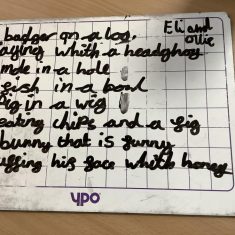 Eli and
ollie
badger on a log.
aying whith a headghog
mole in a hole
fish in a bowl
Pig in a wig
eating chips and a fig
bunny that is funny
uffing his face whith honey
ypo